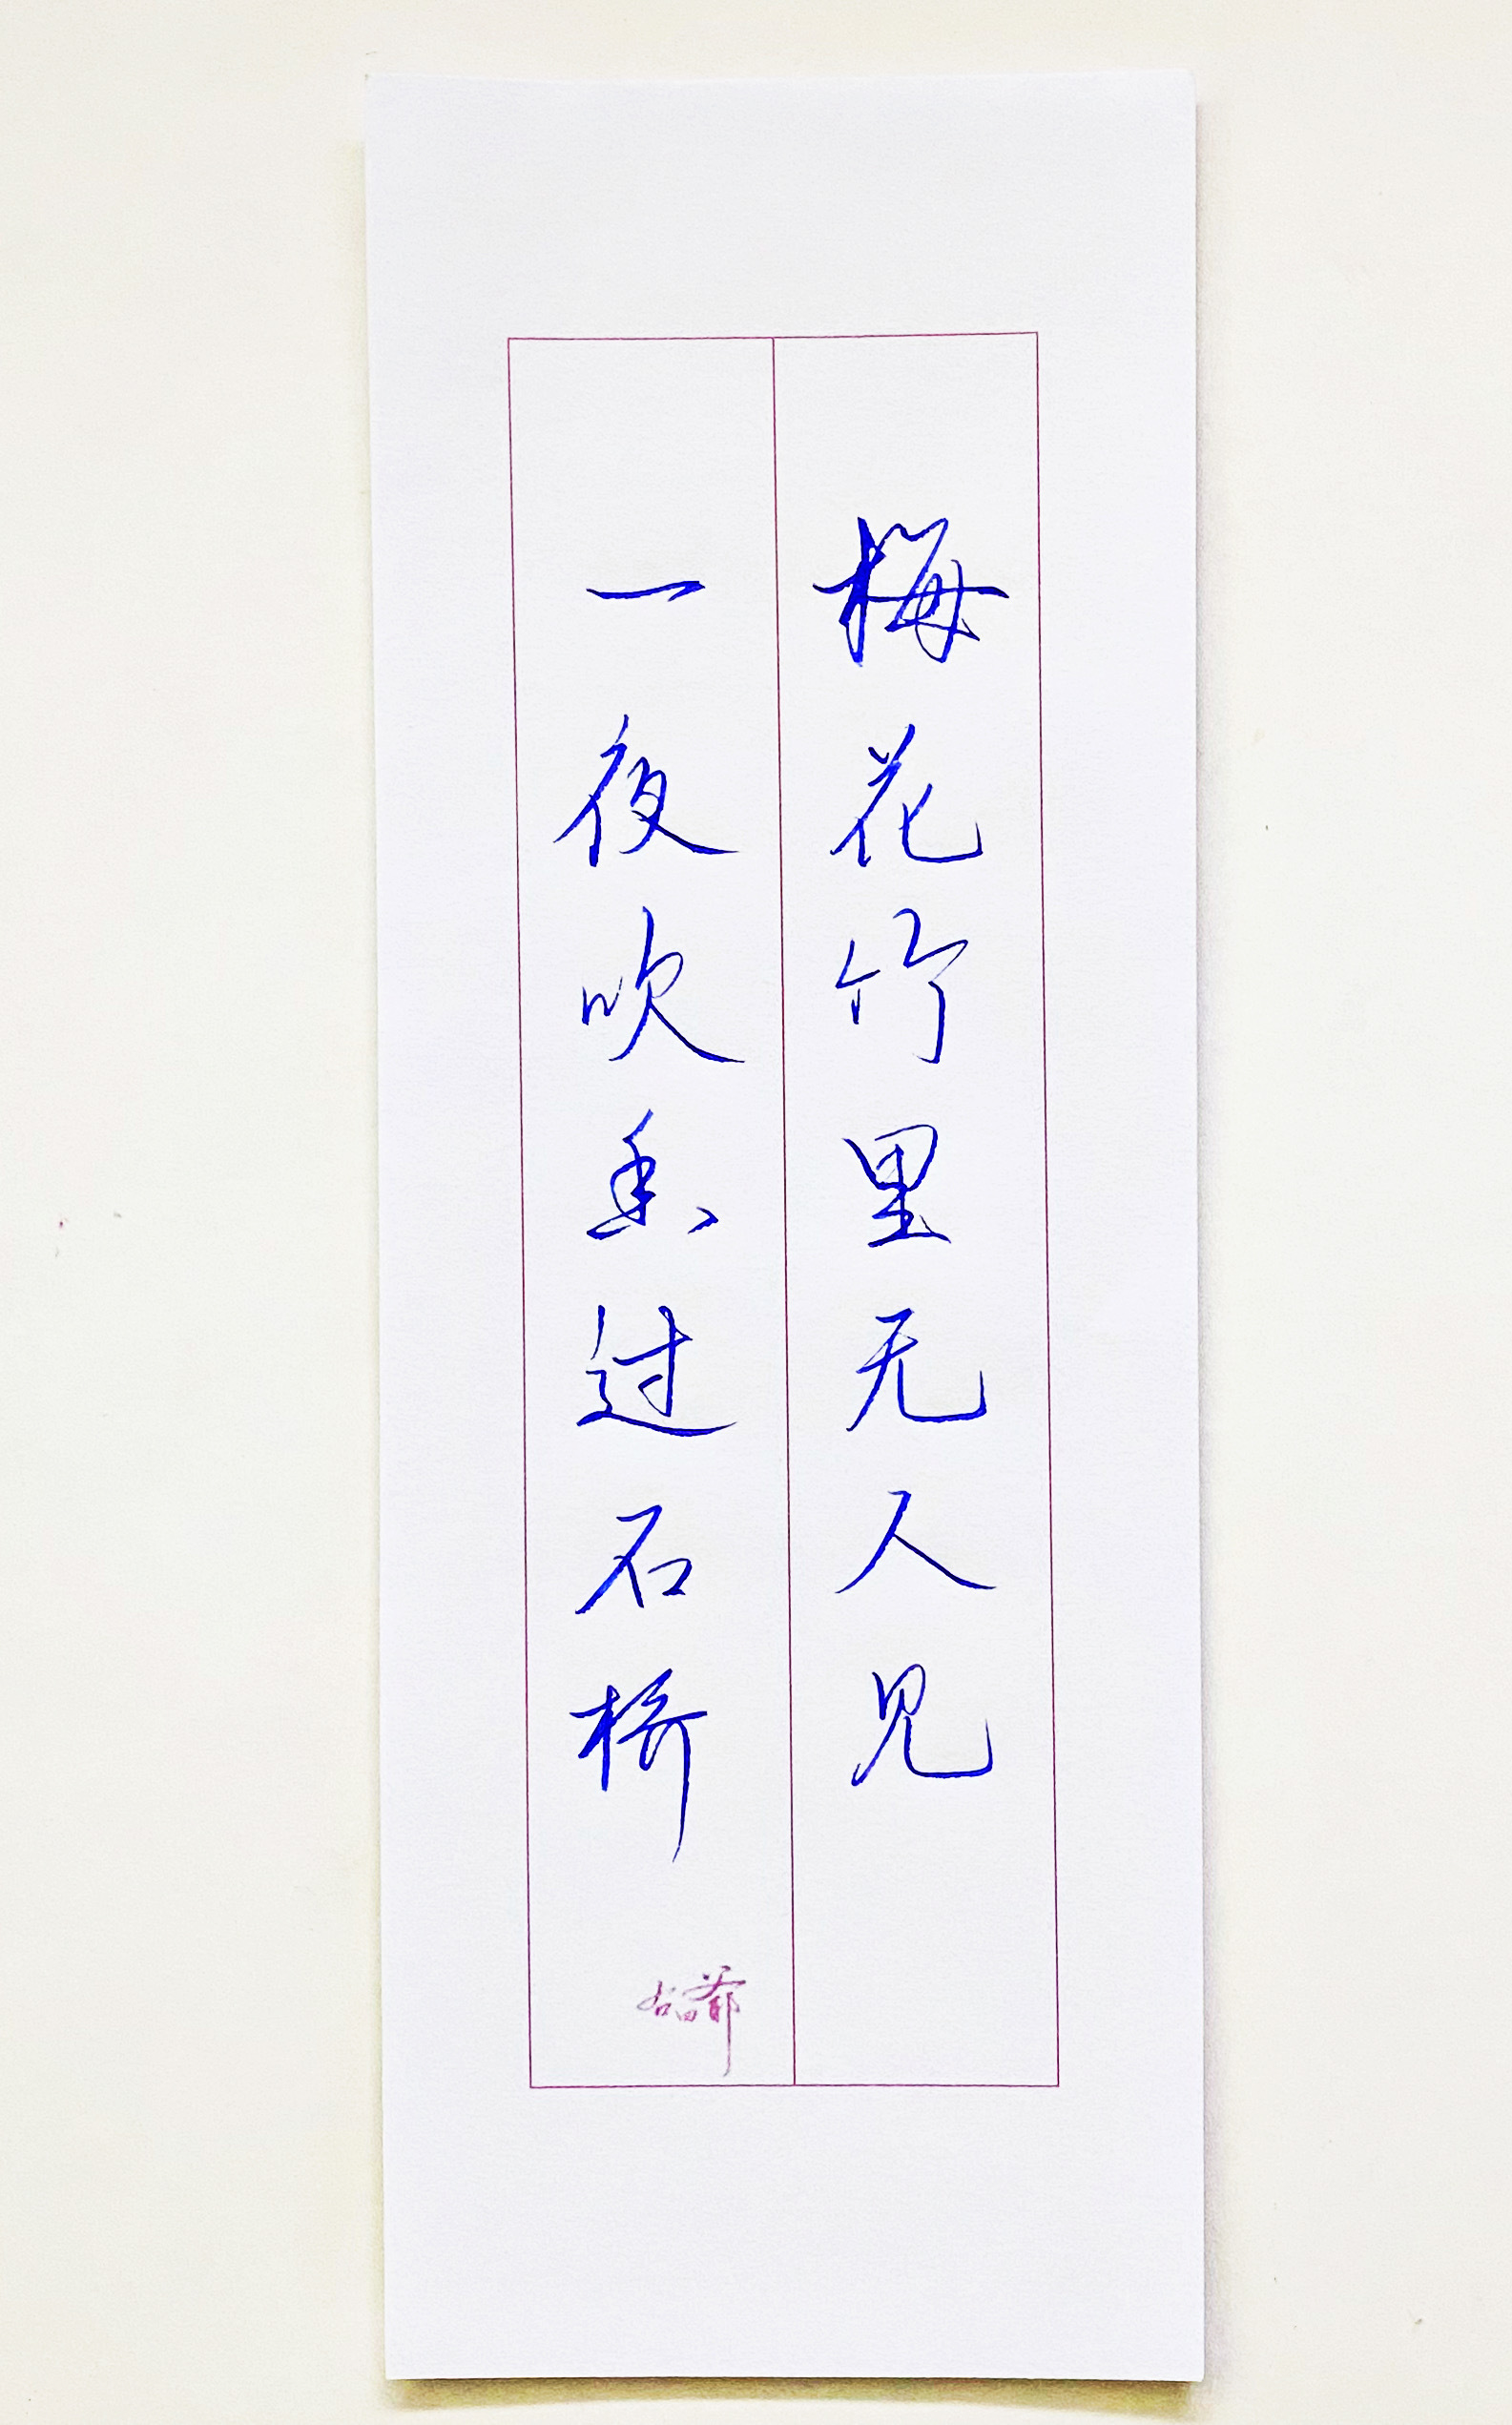 梅花竹里无人见
一夜吹香过石桥